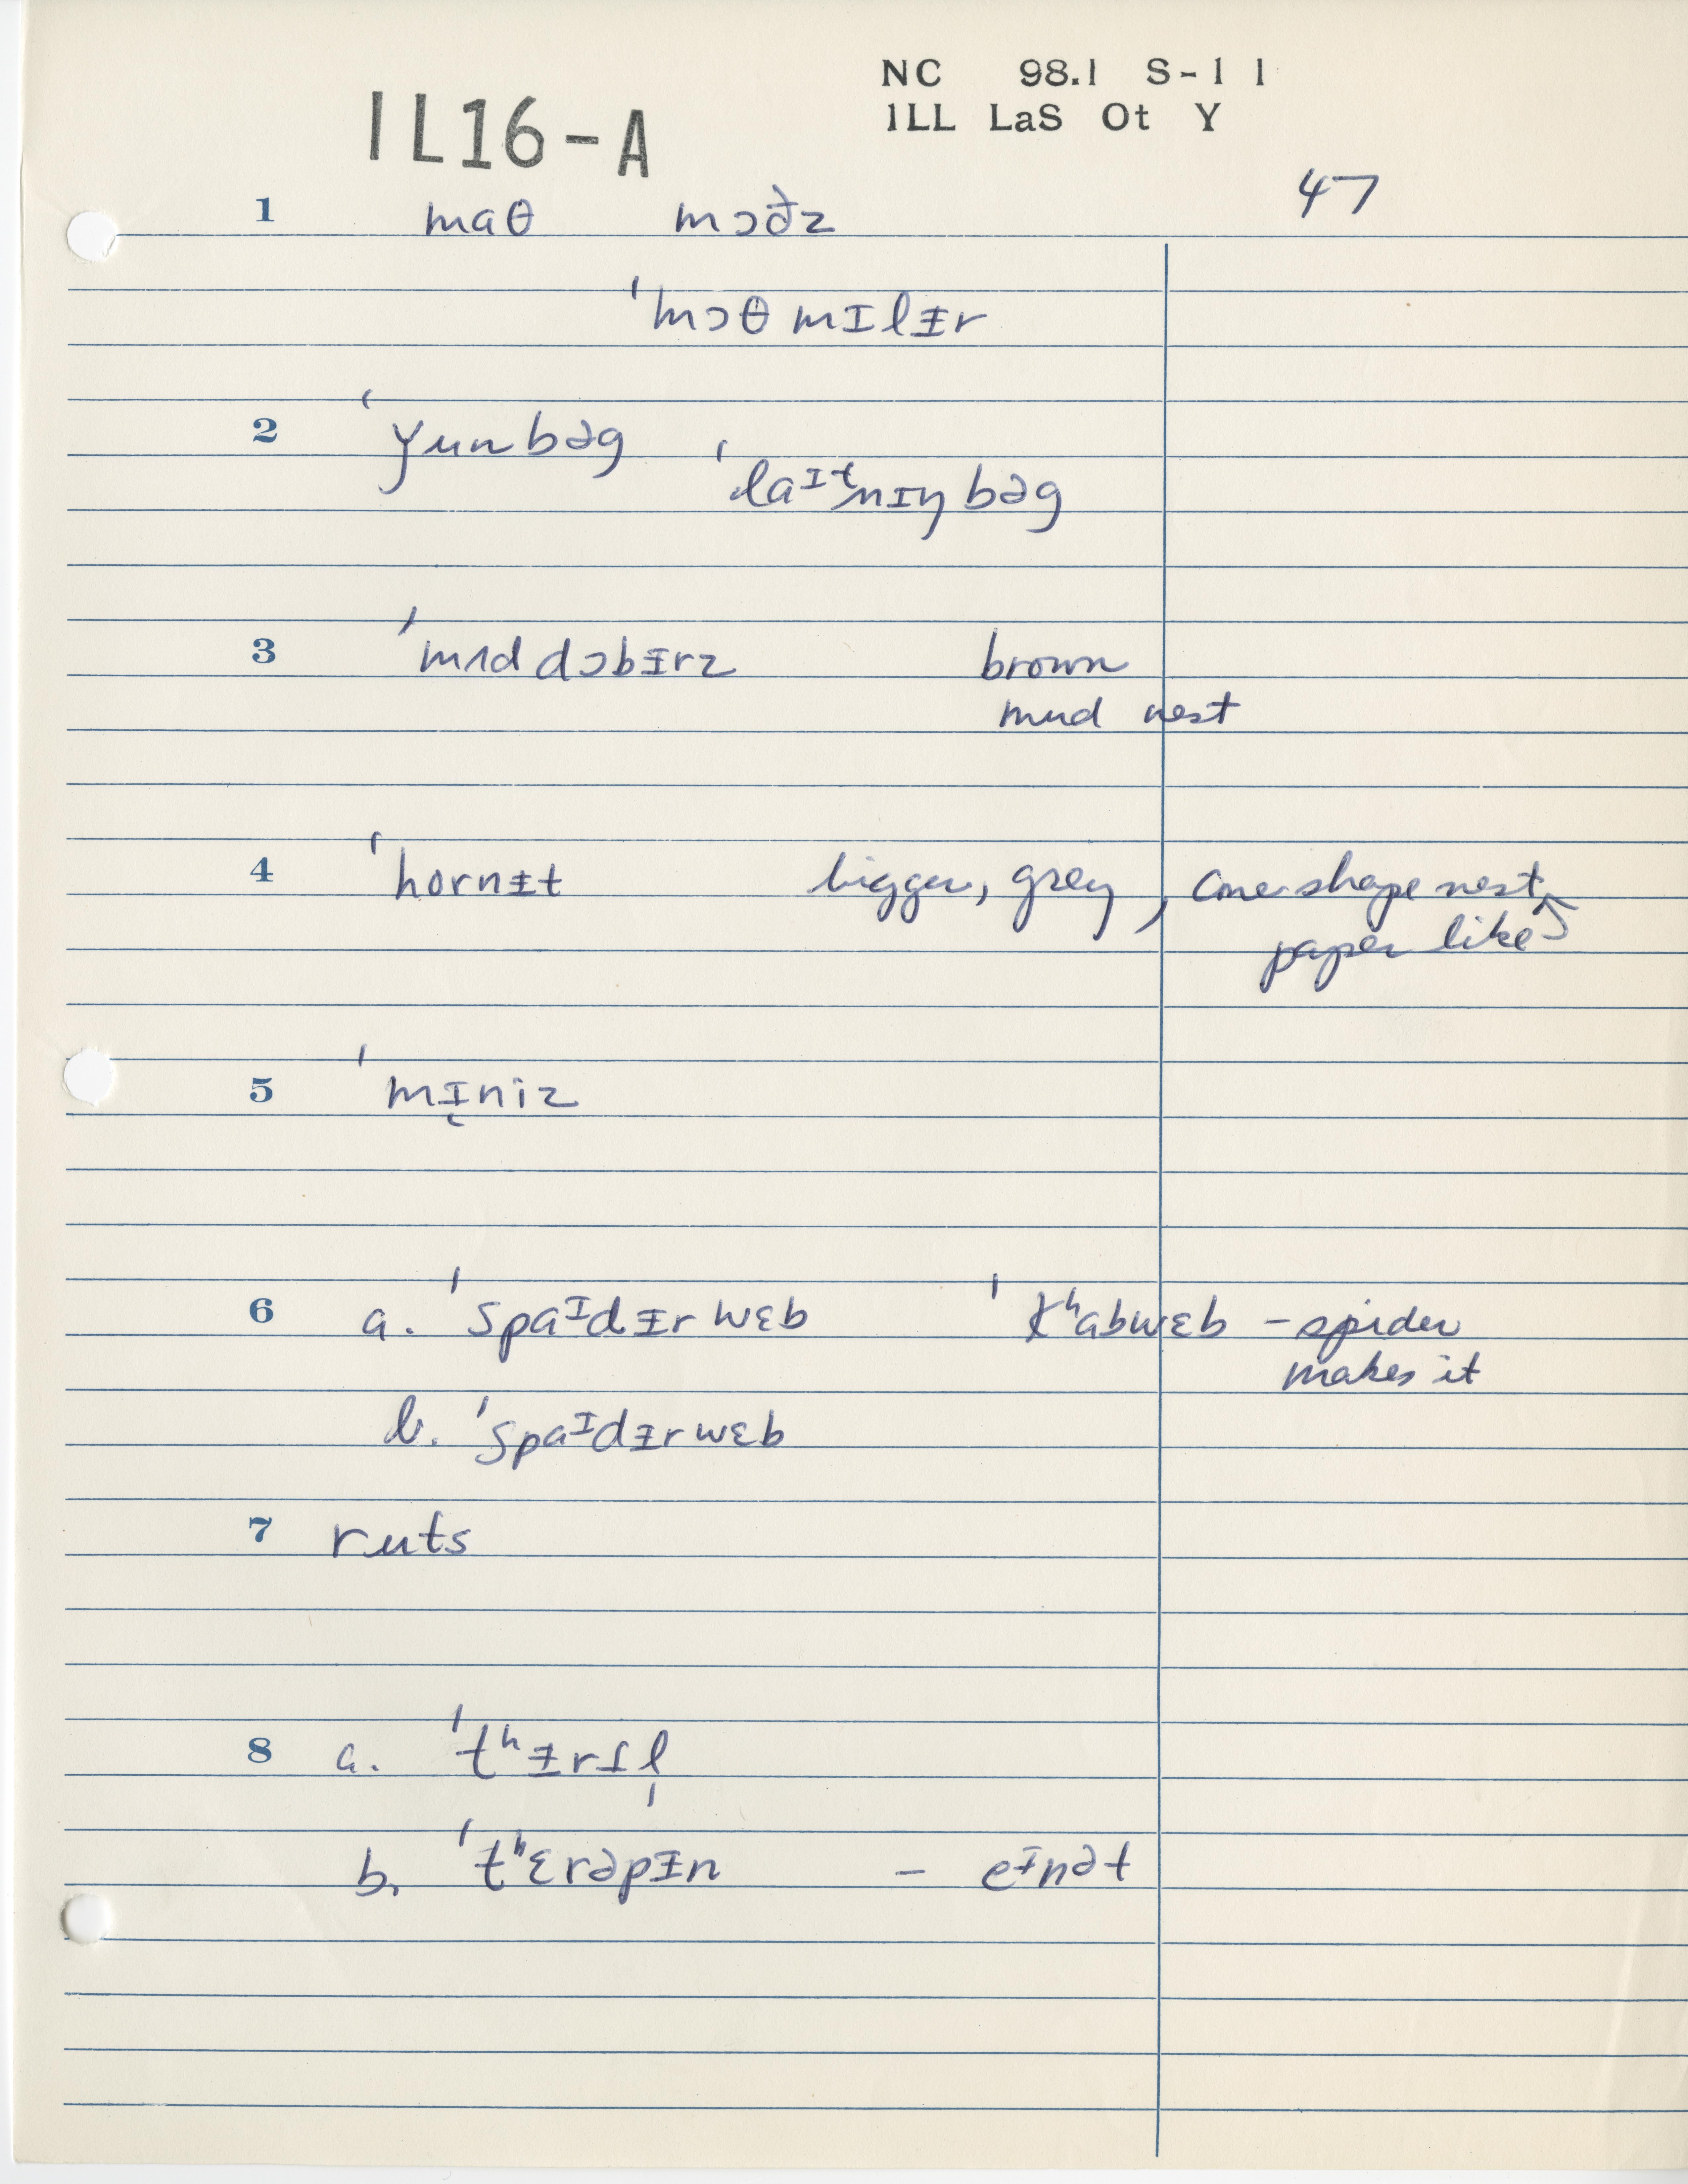 NC 98.1 S-11
ILL LaS Ot Y
IL16-A
47
1 maθ mɔðz
ˈmɔθ mɪlɨr
2 ˈyunbəg
ˈlaɪtnɪŋ bəg
3 ˈmʌd dɔbɨrz brown
mud nest
4 ˈhornɨt bigger, grey, cone shape nest
paper like
5 ˈmɪ̨niz
6 a. ˈspaɪdɨr wɛb ˈkʰabwɛb – spider
makes it
b. ˈspaɪdɨr wɛb
7 ruts
8 a. ˈtʰɨrtl̩
b. ˈtʰɛrəpɨn – eɪnət